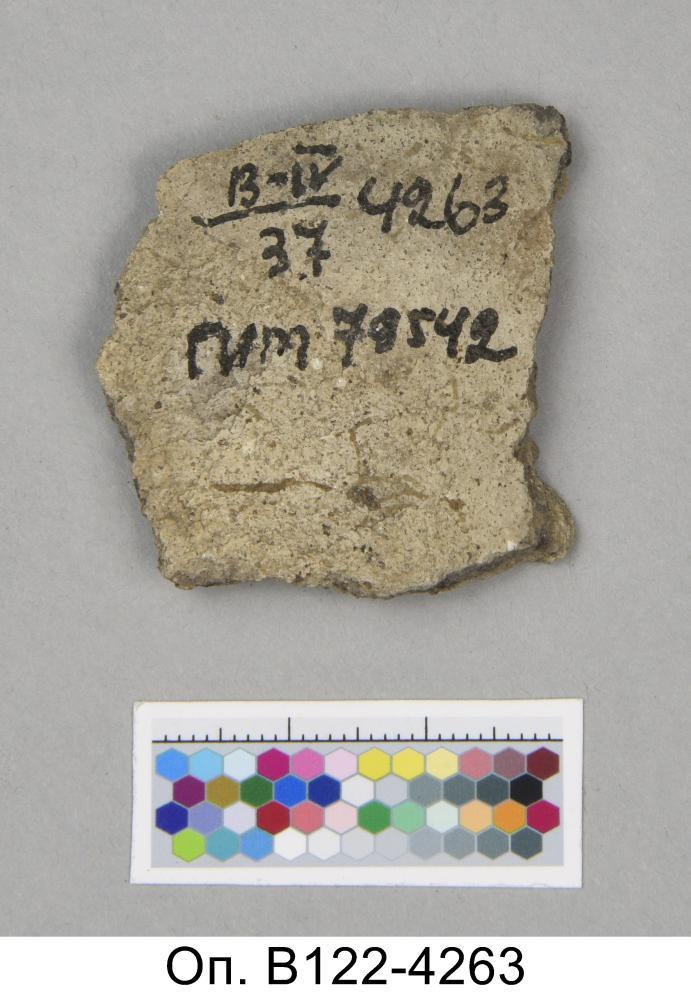 В-IV 4263
37
ГИМ 78542
Оп. В122-4263